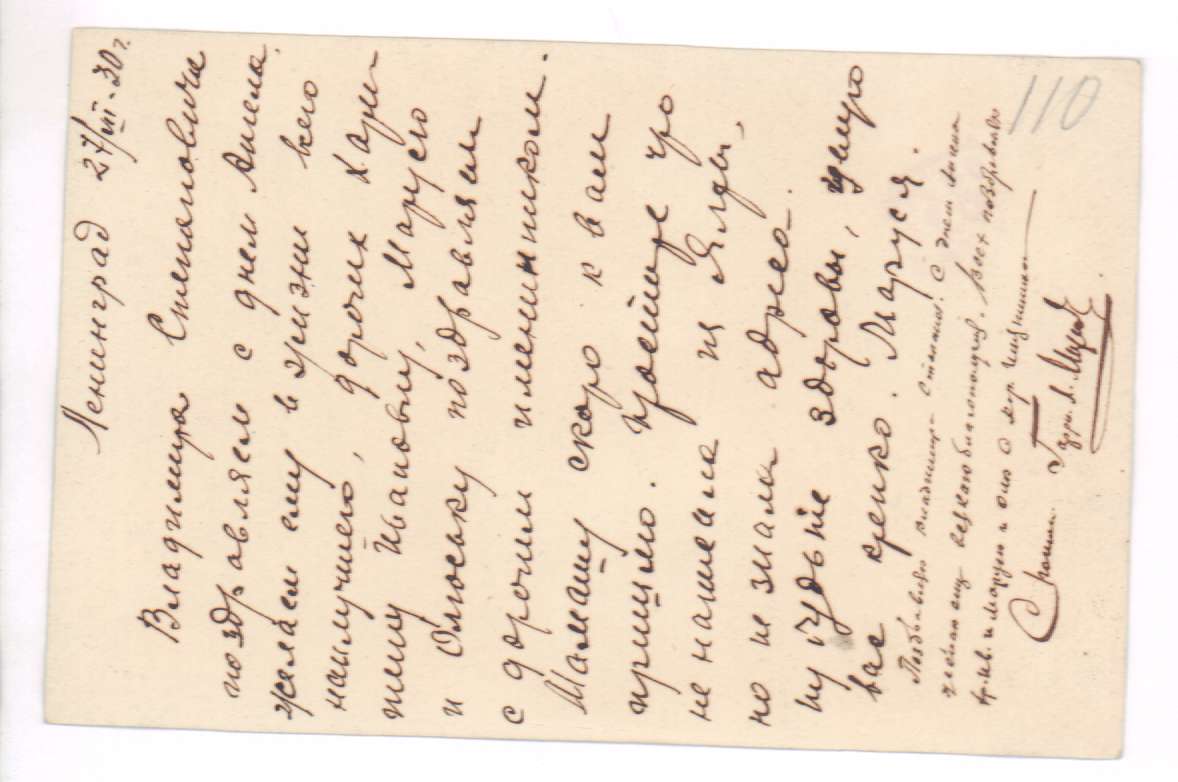 Ленинград 27/VII-30 г.
Владимира Степановича
поздравляем с днем Ангела
желаем ему в жизни всего
наилучшего, дорогих Хари-
тину Ивановну, Марусю
и Олюську поздравляем
с дорогим имениником.
Мамашу скоро к вам
пришлю. Простите что
не написала из Ялты,
но не знала адреса.
Ну будьте здоровы, целую
вас крепко. Маруся.
Поздравляю Владимира Степ. с днем Ангела
желаю ему всего благополучия. Всех поздравляю
и Марусю и Олю с
110